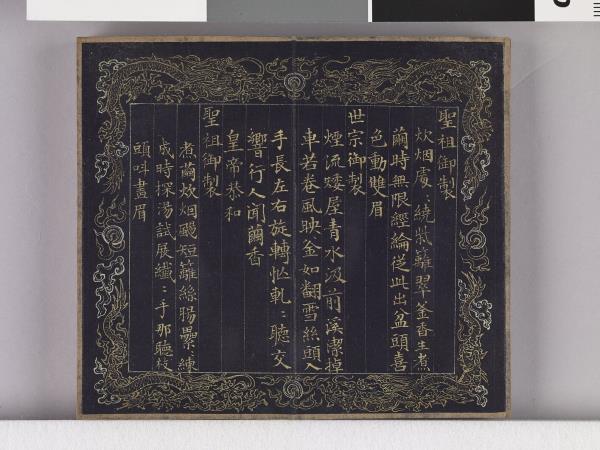 聖祖御製
炊烟處〻繞柴籬翠釜香生煮
繭時無限經綸從此出盆頭喜
色動雙眉
世宗御製
煙流矮屋青水汲前溪潔掉
車若卷風映釜如翻雪絲頭入
手長左右旋轉忙軋〻聽交
響行人聞繭香
皇帝恭和
聖祖御製
煮繭炊烟颺短籬絲腸纍〻練
成時探湯試展纖〻手那聽枝
頭叫畫眉